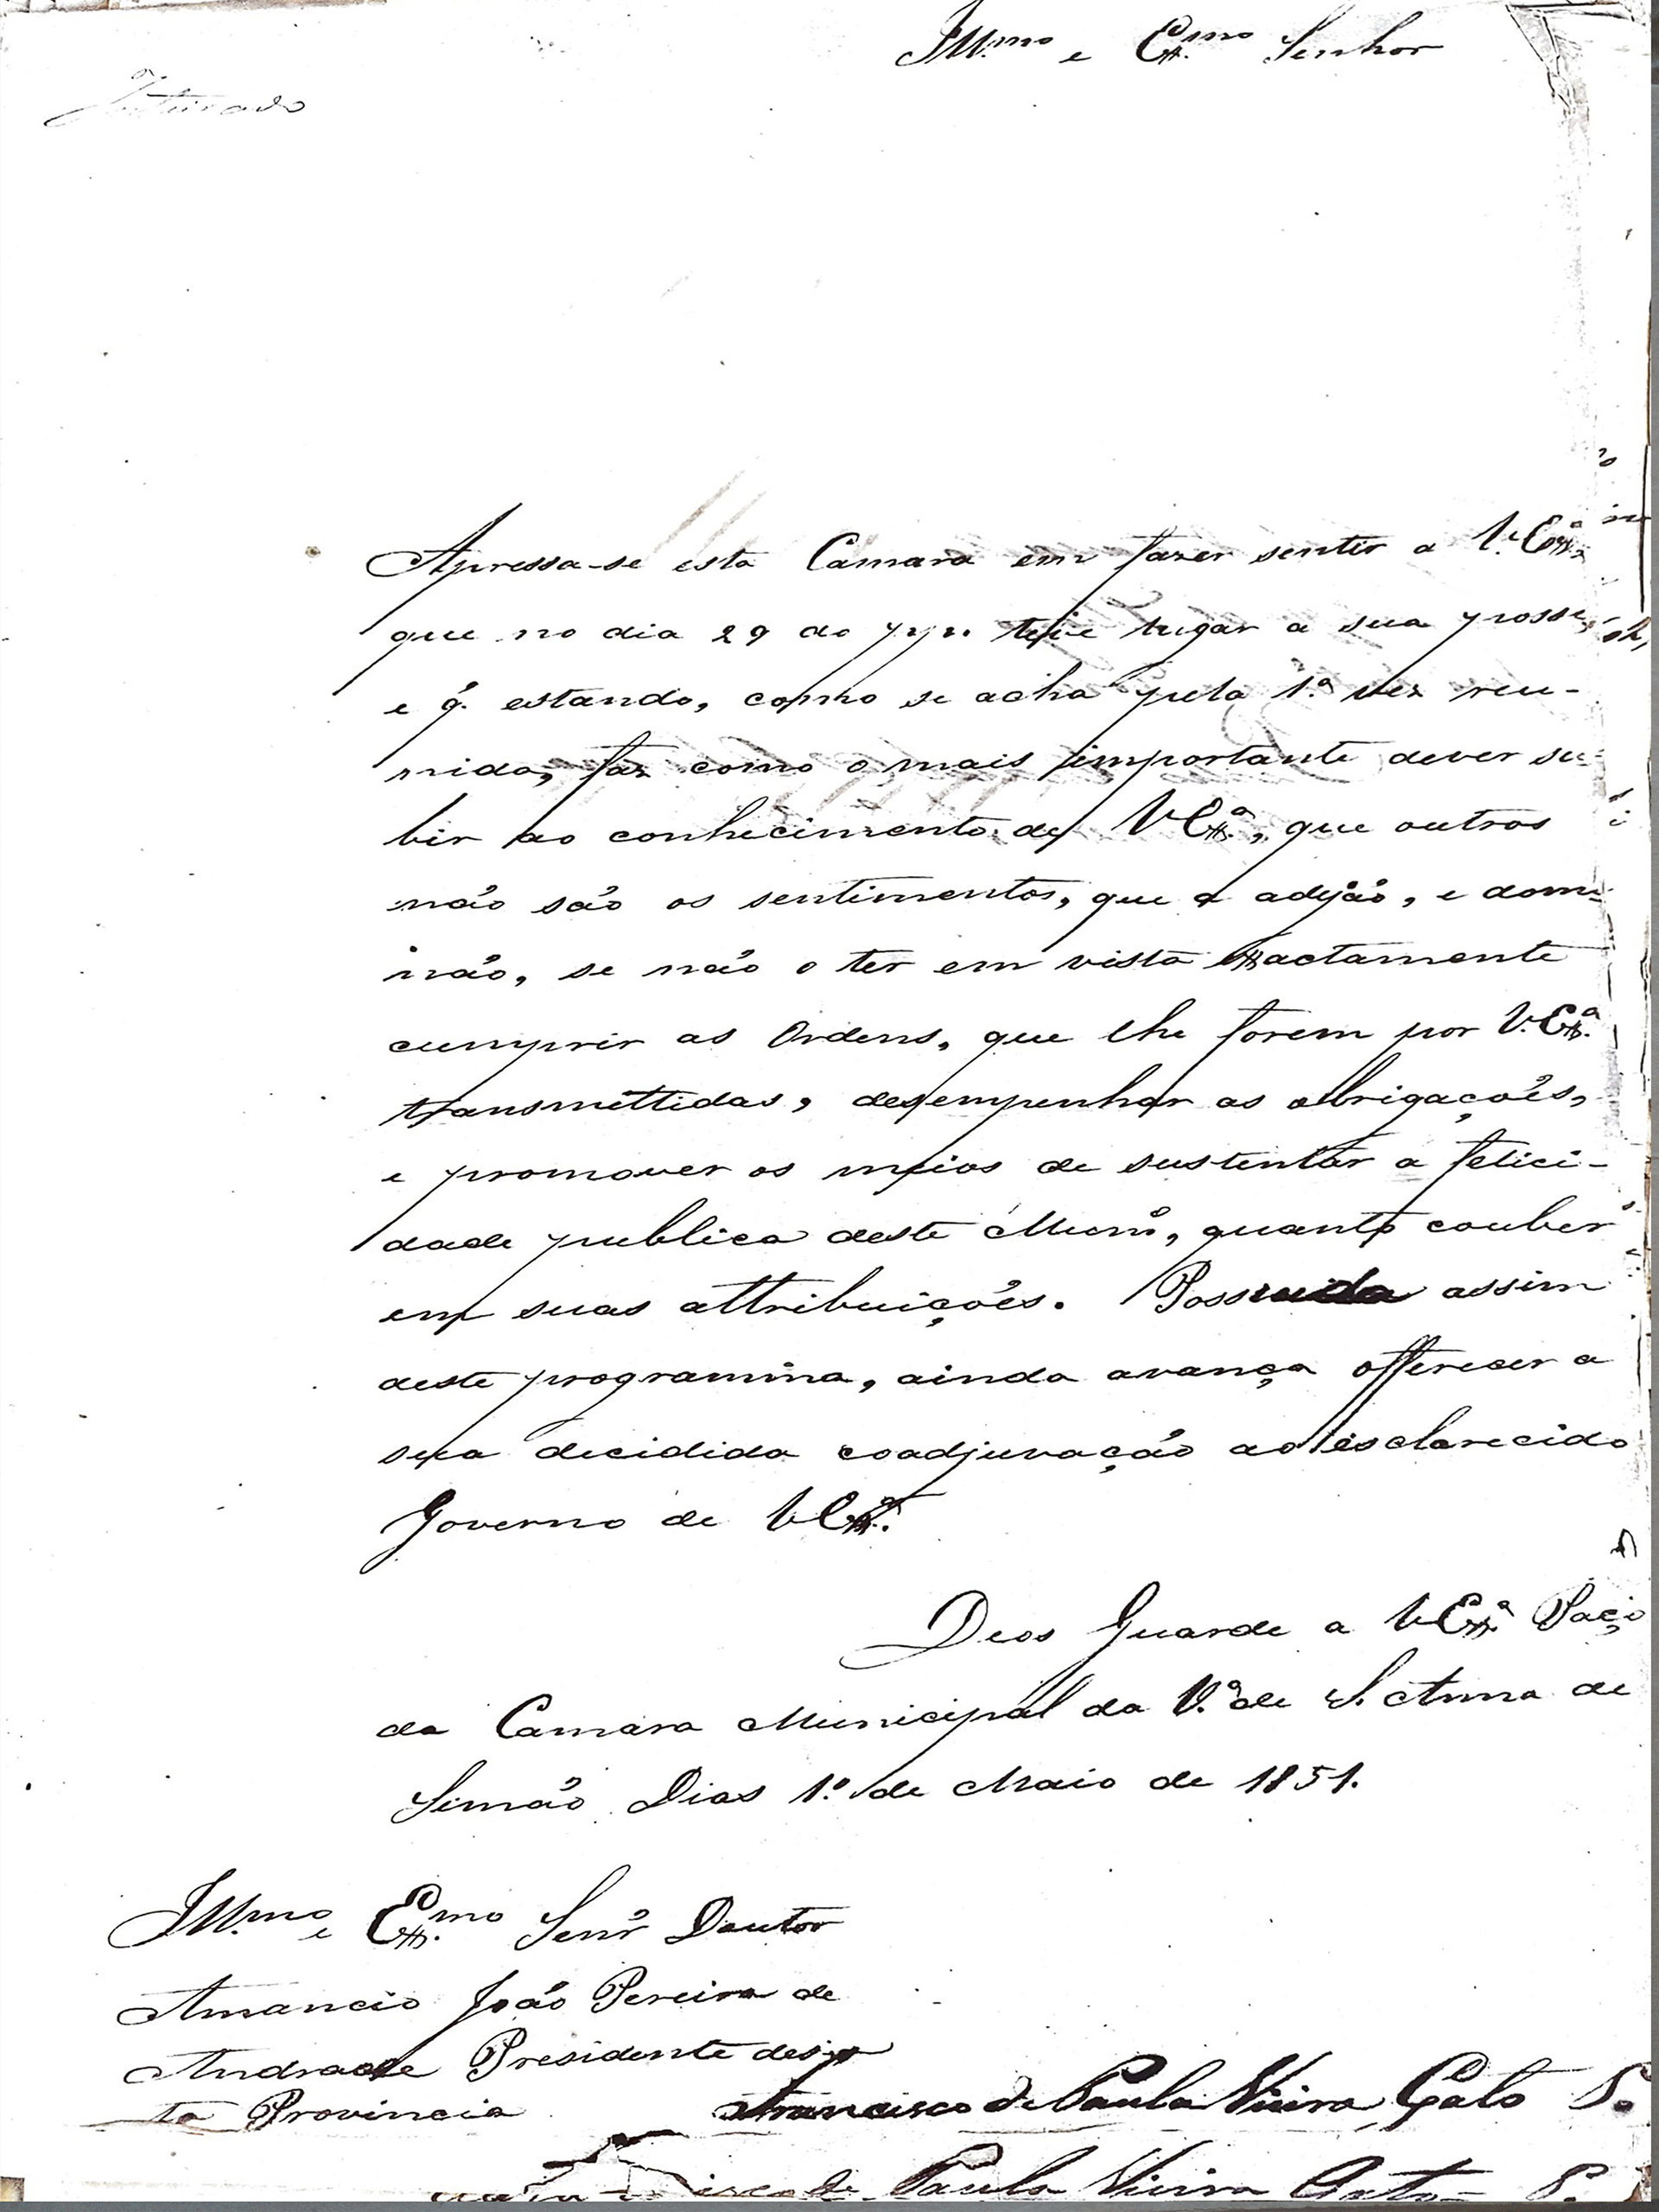 Ill.mo e Ex.mo Senhor
Inteirado
Apressa-se esta Camara em fazer sentir a V. Ex.ª
que no dia 29 do pp. teve lugar a sua posse,
e q. estando, como se acha pela 1.ª vez reu-
nida, faz como o mais importante dever su-
bir ao conhecimento de V Ex.ª, que outros
não são os sentimentos, que a , e domi-
não, se não o ter em vista exactamente
cumprir as Ordens, que lhe forem por V. Ex.ª
transmittidas, desempenhar as obrigações,
e promover os meios de sustentar a felici-
dade publica deste Mun.º, quanto couber
em suas attribuições. Possuida assim
deste programma, ainda avança offerecer a
sua decidida coadjuvação ao esclarecido
Governo de V Ex.ª
Deos Guarde a V Ex.ª Paço
da Camara Municipal da V.ª de S. Anna de
Simão Dias 1.º de Maio de 1851.
Ill.mo e Ex.mo Senr Doutor
Amancio João Pereira de
Andrade Presidente des-
ta Provincia
Francisco de Paula Vieira Gato P.
de Paula Vieira Gato P.